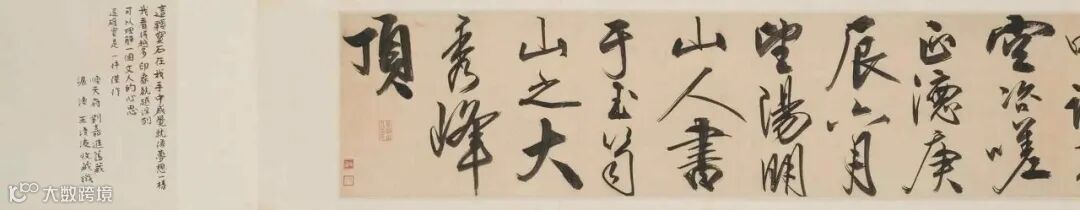 空冷嗟
正德庚
辰六月
望陽明
山人書
于玉笥
山之大
秀峰
頂
這顆寶石在我手中感覺就活夢想一樣
我看得越多印象就越深刻
可以理解一個文人的心思
這確實是一件傑作
劉嘉進舊藏
收藏識
大数跨境